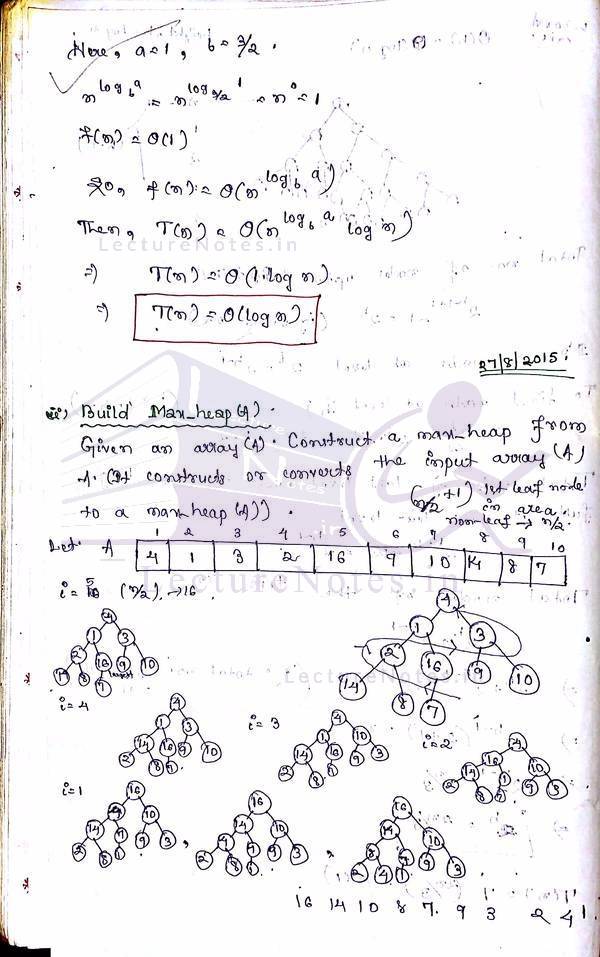 Here, a=1, b=3/2.
n^log_b a = n^log_3/2 1 = n^0 = 1
f(n) = Θ(1)
So, f(n) = Θ(n^log_b a)
Then, T(n) = Θ(n^log_b a log n)
LectureNotes.in
⇒ T(n) = Θ(1. log n)
⇒ T(n) = Θ(log n).
27/8/2015.
iii) Build Max_heap(A).
Given an array (A). Construct a max_heap from
A. (It constructs or converts the input array (A)
to a max_heap(A)).
(n/2 +1) 1st leaf node
in area.
non-leaf → n/2.
1 2 3 4 5 6 7 8 9 10
Let A 4 1 3 2 16 9 10 14 8 7
LectureNotes.in
i = 5 (n/2). → 16
4
1 3
2 16 9 10
14 8 7
4
1 3
2 16 9 10
14 8 7
LectureNotes.in
i=4
4
1 3
14 16 9 10
2 8 7
i=3
4
1 10
14 16 9 3
2 8 7
i=2
4
16 10
14 7 9 3
2 8 1
i=1
16
4 10
14 7 9 3
2 8 1
,
16
14 10
4 7 9 3
2 8 1
,
16
14 10
8 7 9 3
2 4 1
16 14 10 8 7. 9 3 2 4 1